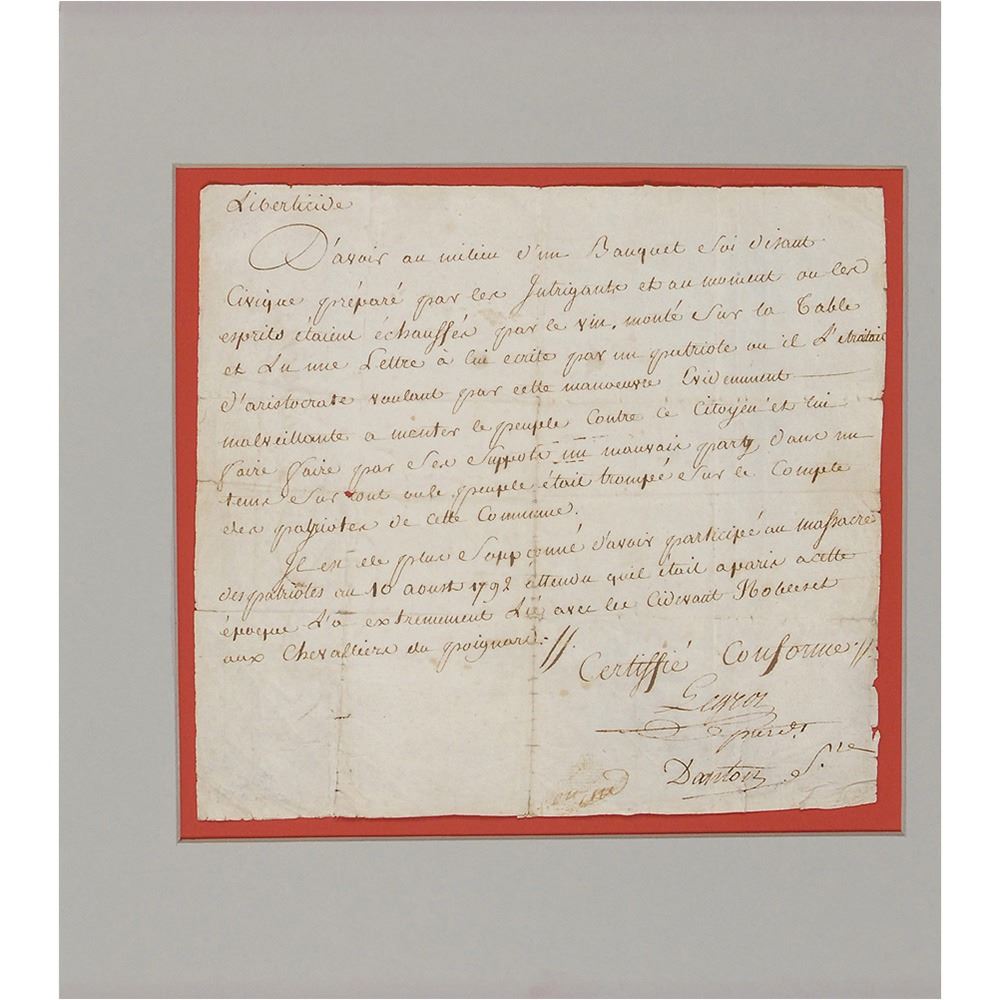 Liberticide
D'avoir au milieu d'un Banquet Soi disant
Civique préparé par les Intrigants et au moment ou les
esprits étaient échauffés par le vin, monté Sur la Table
et Lu une Lettre à lui ecrite par un patriote ou il L'etraitait
d'aristocrate voulant par cette manoeuvre Evidemment
malveillante a menter le peuple Contre ce Citoyen et lui
faire faire par Ses Suppots un mauvais party dans un
tems Sur tout ou le peuple était trompée Sur le Compte
des patriotes de cette Commune.
Il est de plus Soppçonné d'avoir participée au massacre
des patriotes au 10 aoust 1792 attendu quil était aparis acette
époque L'a extremement Lié avec les Cidevant Nobles et
aux Chevalliers du poignard. //.
Certiffié Conforme //.
Danton S.re